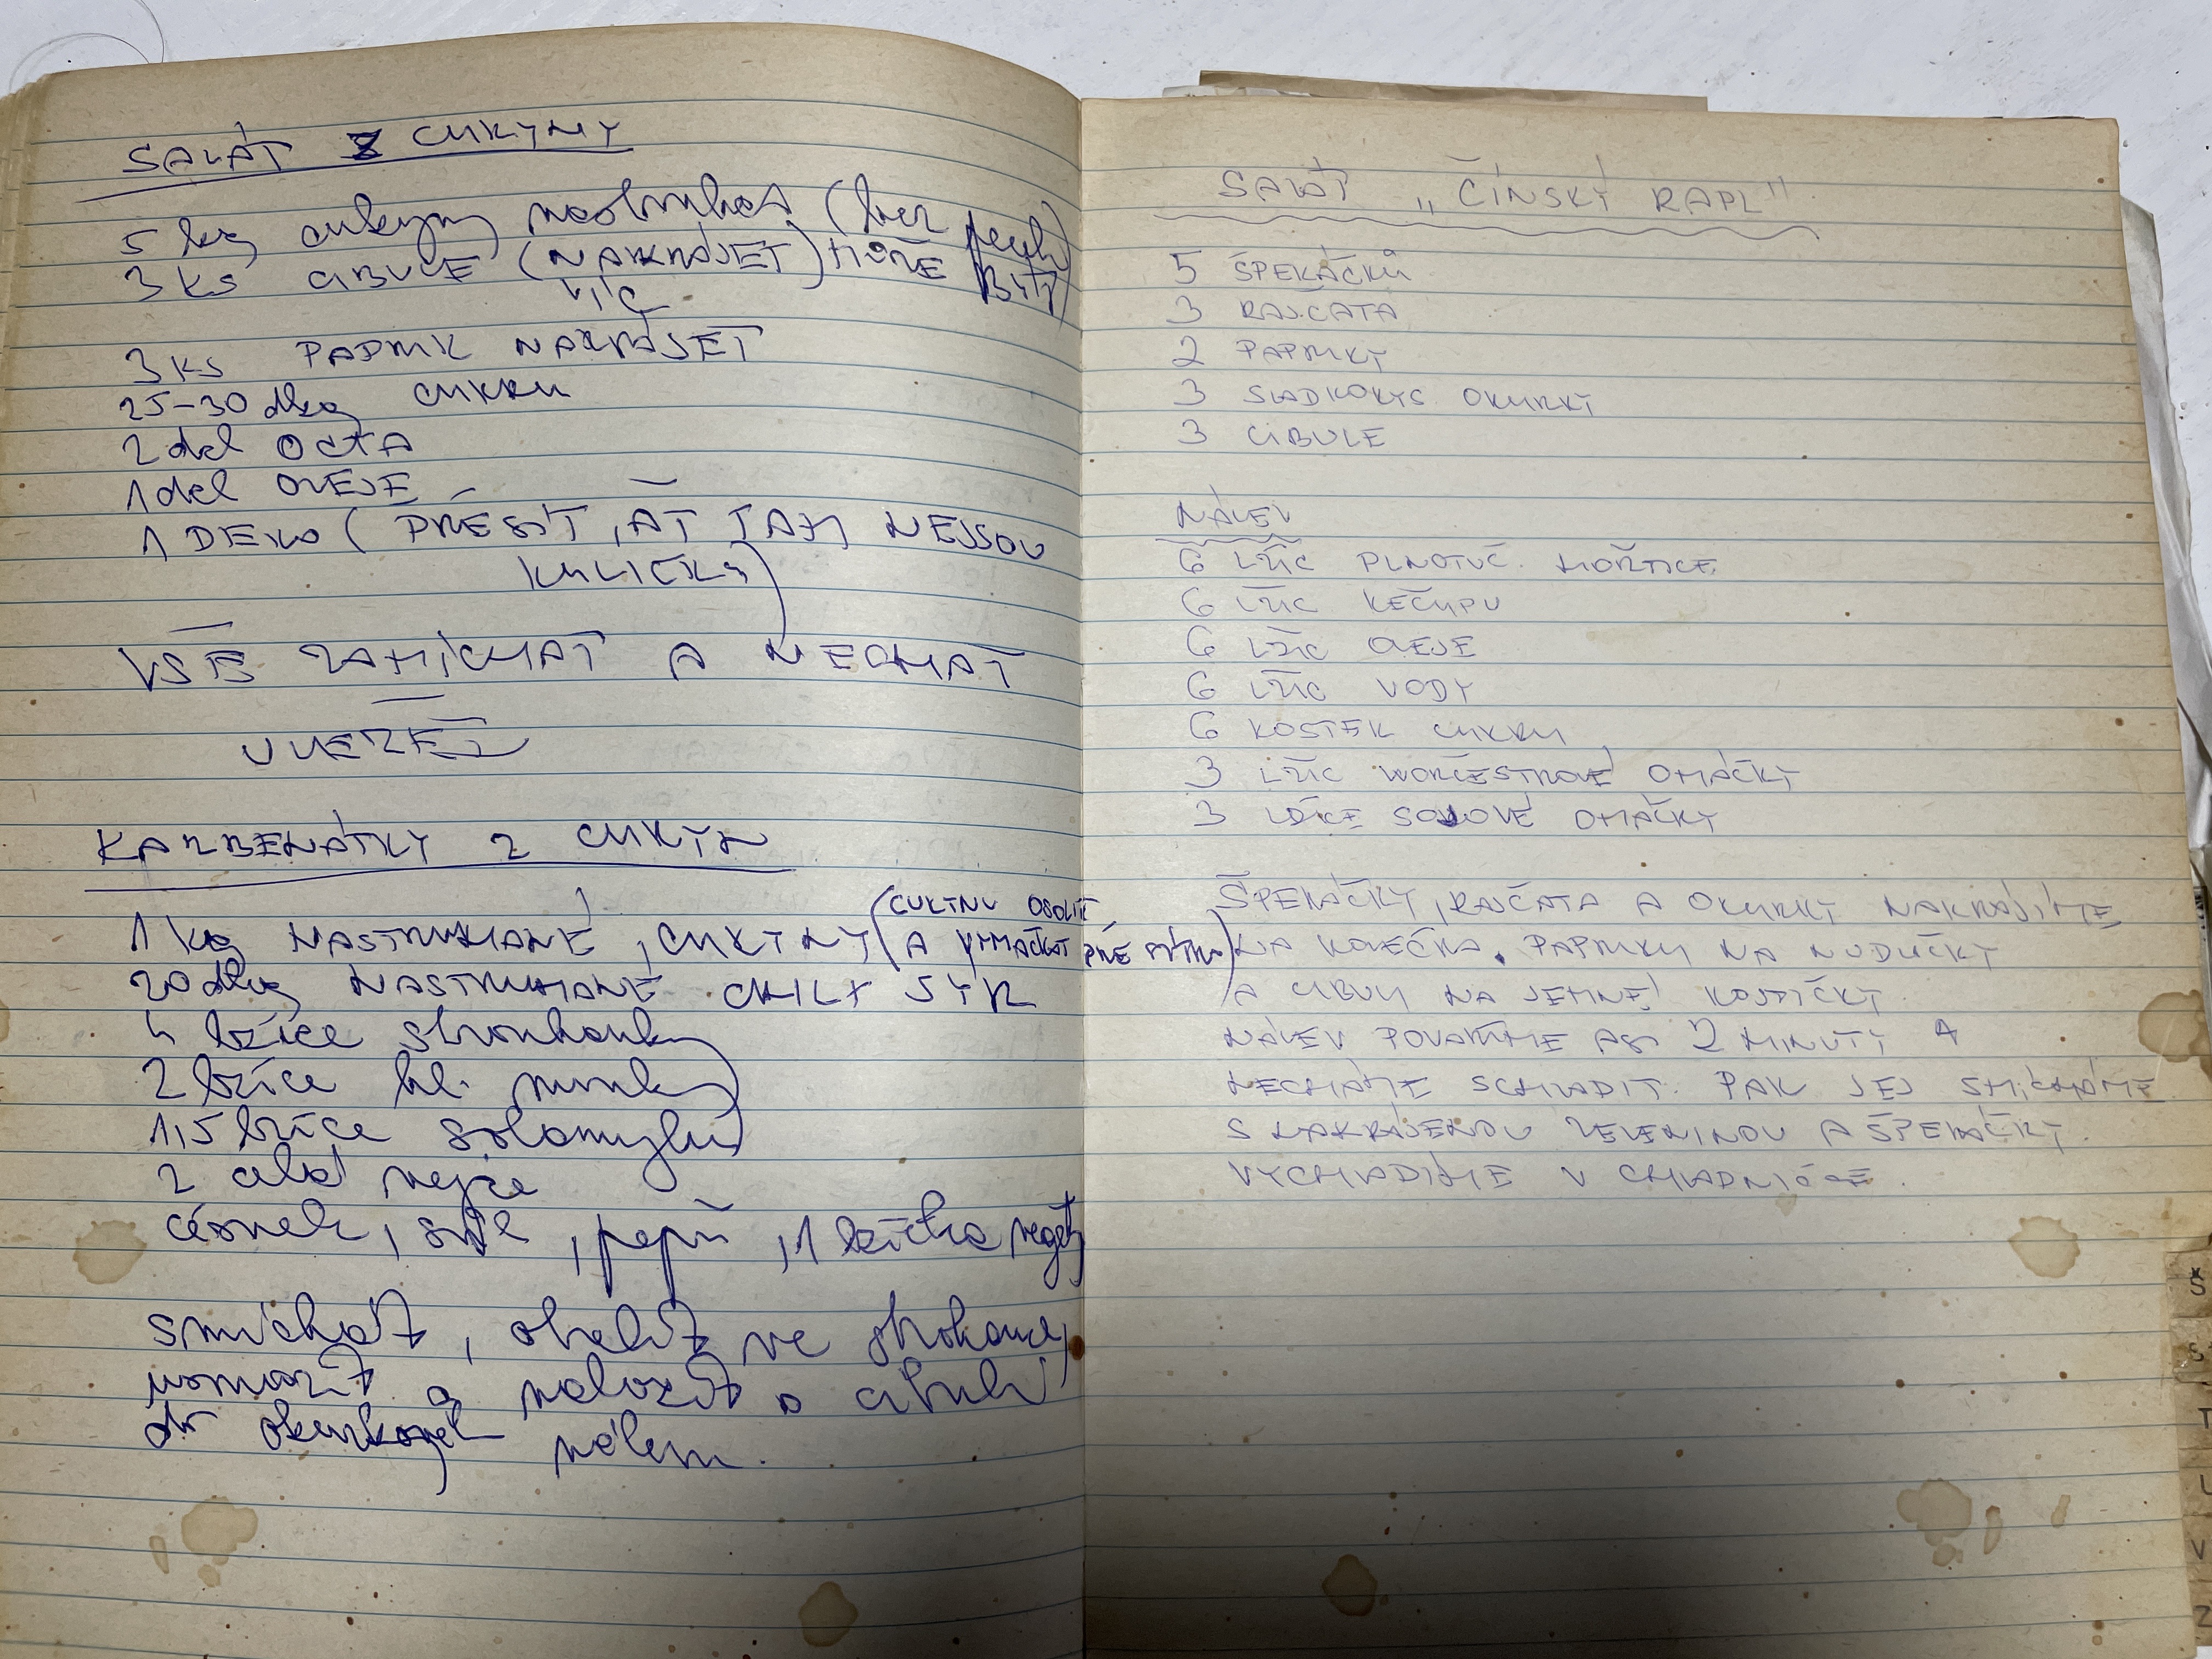 SALÁT Z CUKYNY
5 kg cukeyn nastrouhat (len
3 ks CIBULE (NAKRAJET)
3 ks PAPRIK NAKRAJET
25-30 dkg CUKRU
2 del OCTA
1 del OLEJE
1 DEKO (PŘEJÍT, AŤ TAM NEJSOU
KULIČKY)
VŠE ZAMÍCHAT A NECHAT
ULEŽET
KARBENÁTKY Z CUKET
1 kg NASTROUHANÉ CUKETNY (A VYMAČKAT PŘES
20 dkg NASTROUHANÉ CIHLY SÝR
4 lžíce strouhanky
2 lžíce hl. mouky
1,5 lžíce solamylu
2 celá vejce
česnek, sůl, pepř, 1 lžička vegety
Smíchat, obalit ve strouhance,
a položit
SALÁT "ČÍNSKÝ RAPL"
5 ŠPEKÁČKŮ
3 RAJČATA
2 PAPRIKY
3 SLADKOKYS. OKURKY
3 CIBULE
NÁLEV
6 LŽIC PLNOTUČ. HOŘTICE
6 LŽIC KEČUPU
6 LŽIC OLEJE
6 LŽIC VODY
6 KOSTEK CUKRU
3 LŽÍC WORČESTROVÉ OMÁČKY
3 LŽÍCE SOJOVÉ OMÁČKY
ŠPEKÁČKY, RAJČATA A OKURKY NAKRÁJÍME
NA KOLEČKA. PAPRIKU NA NUDLIČKY
A CIBULI NA JEMNÉ KOSTIČKY.
NÁLEV POVAŘÍME ASI 2 MINUTY A
NECHÁME SCHLADIT. PAK JEJ SMÍCHÁME
S NAKRÁJENOU ZELENINOU A ŠPEKÁČKY.
VYCHLADÍME V CHLADNIČCE.